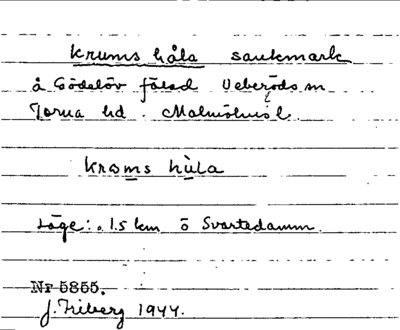 Krums håla sankmark
å Gödelöv fälad Veberöds sn
Torna hd. Malmöhus l.
Kroms hùla
Läge: 1.5 km ö Svartedamm.
Nr 5855.
J. Friberg 1944.